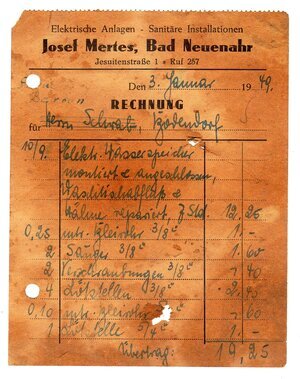 Elektrische Anlagen - Sanitäre Installationen
Josef Mertes, Bad Neuenahr
Jesuitenstraße 1 • Ruf 257
Den 3. Januar 1949.
RECHNUNG
für Herrn Schwab, Bodendorf
10/9. Elektr. Wasserspeicher
montiert & angeschlossen,
Waschtischabfluß &
Hähne repariert, 7 Std. 12,25
0,25 mtr. 3/8" 1.-
2 3/8" 1.60
2 Verschraubungen 3/8" -.40
4 Lötstellen 3/8" 2.45
0,10 mtr. -.40
1 Lötstelle 1.-
Übertrag: 19,25